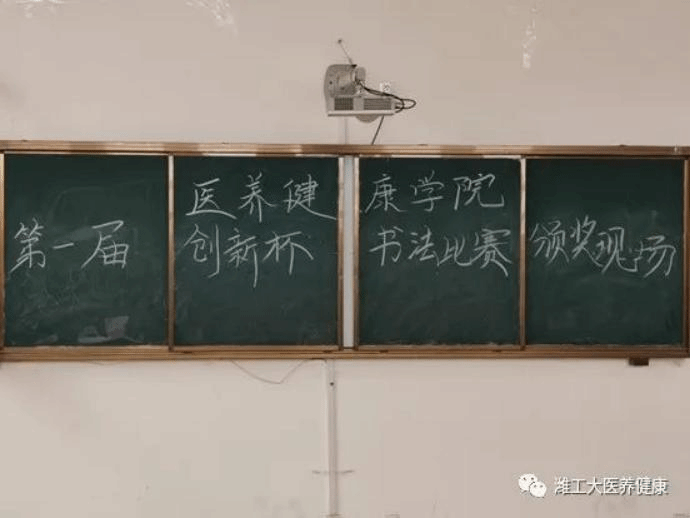 第一届
医养健康学院
创新杯书法比赛
颁奖现场
潍工大医养健康